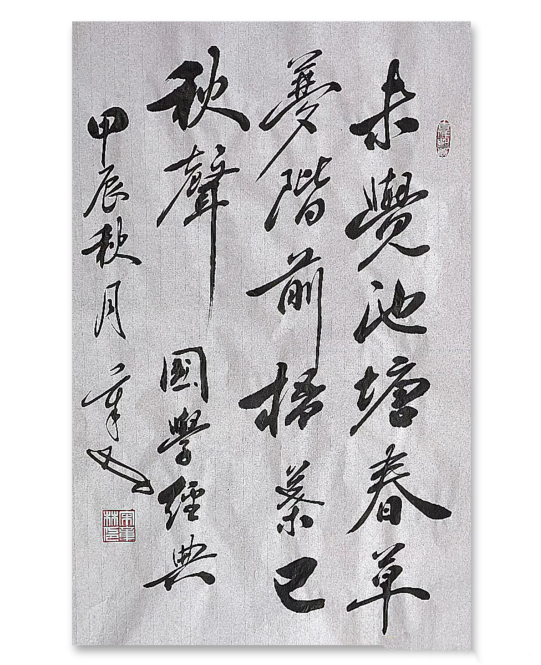 未覺池塘春草
夢階前梧葉已
秋聲
國學經典
甲辰秋月